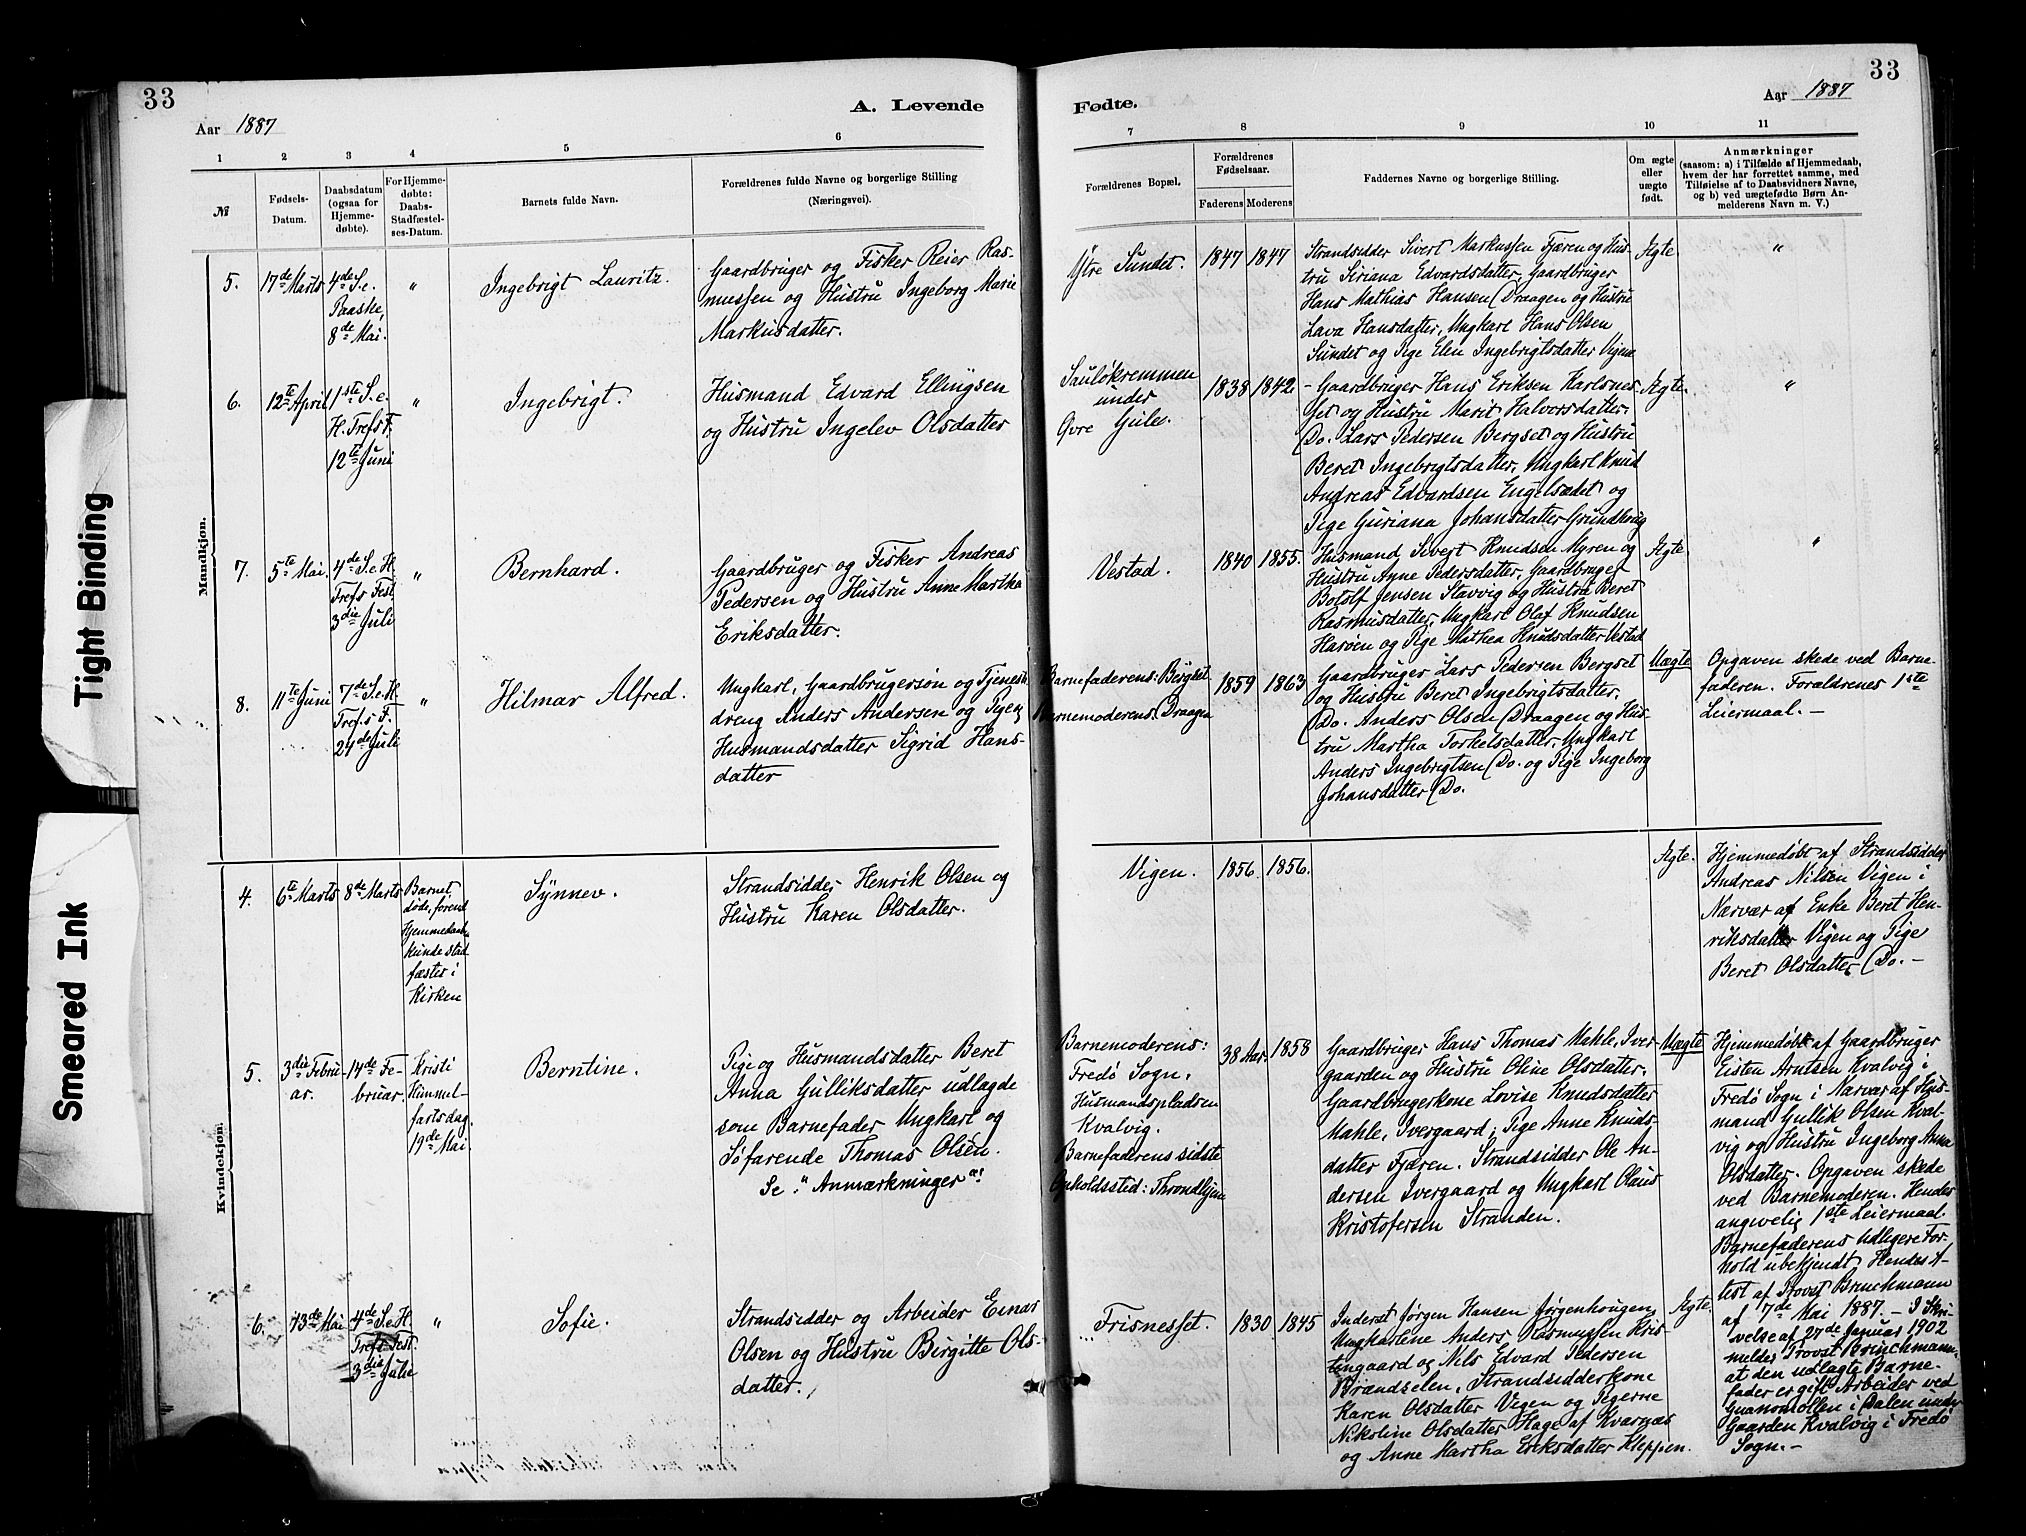 33
33
A. Levende
Fødte.
Aar 1887
Aar 1887
1
2
3
4
5
6
7
8
9
10
11
№
Fødsels-
Datum.
Daabsdatum
(ogsaa for
Hjemme-
døbte).
For Hjemme-
døbte:
Daabs-
Stadfæstel-
ses-Datum.
Barnets fulde Navn.
Forældrenes fulde Navne og borgerlige Stilling
(Næringsvei).
Forældrenes Bopæl.
Forældrenes
Fødselsaar.
Faderens
Moderens
Faddernes Navne og borgerlige Stilling.
Om ægte
eller
uægte
født.
Anmærkninger
(saasom: a) i Tilfælde af Hjemmedaab,
hvem der har forrettet samme, med
Tilføielse af to Daabsvidners Navne,
og b) ved uægtefødte Børn An-
melderens Navn m. V.)
Mandkjøn.
5.
17de Marts
4de S. e.
Paaske,
8de Mai.
"
Ingebrigt Lauritz.
Gaardbruger og Fisker Reier Ras-
mussen og Hustru Ingeborg Marie
Markusdatter.
Ytre Sundet.
1847
1847
Strandsidder Sivert Markussen Fjæren og Hus-
tru Siriana Edvardsdatter, Gaardbruger
Hans Mathias Hansen Draagen og Hustru
Lava Hansdatter, Ungkarl Hans Olsen
Sundet og Pige Elen Ingebrigtsdatter Vigen
Ægte.
"
6.
12te April
1ste S. e.
H. Trefs F.
12te Juni
"
Ingebrigt.
Husmand Edvard Ellingsen
og Hustru Ingelev Olsdatter
Sauløkremmen
under
Øvre Gule.
1838
1842.
- Gaardbruger Hans Eriksen Karlsnes-
set og Hustru Marit Halvorsdatter.
Do. Lars Pedersen Bergset og Hustru
Beret Ingebrigtsdatter, Ungkarl Knud
Andreas Edvardsen Engelsædet og
Pige Guriana Johansdatter Grundhoug
Ægte.
"
7.
5te Mai.
4de S. e. H.
Trefs Fest
3die Juli
"
Bernhard.
Gaardbruger og Fisker Andreas
Pedersen og Hustru Anne Martha
Eriksdatter.
Vestad.
1840
1855.
Husmand Sivert Knudsen Myren og
Hustru Anne Pedersdatter, Gaardbruger
Botolf Jensen Stavvig og Hustru Beret
Rasmusdatter, Ungkarl Olaf Knudsen
Harøen og Pige Mathea Knudsdatter Vestad
Ægte
"
8.
11te Juni
7de S. e. H.
Trefs F.
24de Juli
"
Hilmar Alfred.
Ungkarl, Gaardbrugersøn og Tjeneste-
dreng Anders Andersen og Pigen
Husmandsdatter Sigrid Hans-
datter
Barnefaderens: Bergset
Barnemoderens: Draagen
1859
1863
Gaardbruger Lars Pedersen Bergset
og Hustru Beret Ingebrigtsdatter.
Do. Anders Olsen Draagen og Hus-
tru Martha Torkelsdatter, Ungkarl
Anders Ingebrigtsen Do. og Pige Ingeborg
Johansdatter Do.
Uægte
Opgaven skede ved Barne-
faderen. Forældrenes 1ste
Leiermaal. -
Kvindekjøn.
4.
6te Marts
8de Marts
Barnet
døde, førend
Hjemmedaab
kunde stad
fæstes i
Kirken
Synnev.
Strandsidder Henrik Olsen og
Hustru Karen Olsdatter.
Vigen.
1856.
1856.
Ægte.
Hjemmedøbt af Strandsidder
Andreas Nilsen Vigen i
Nærvær af Enke Beret Hen-
riksdatter Vigen og Pige
Beret Olsdatter Do. -
5.
3die Febru-
ar.
14de Fe-
bruar.
Kristi
Himmel-
fartsdag.
19de Mai.
Berntine.
Pige og Husmandsdatter Beret
Anna Gulliksdatter udlagde
som Barnefader Ungkarl og
Søfarende Thomas Olsen.
Se "Anmærkninger".
Barnemoderens:
Fredø Sogn,
Husmandspladsen
Kvalvig.
Barnefaderens sidste
Opholdssted: Throndhjem
38 Aar.
1858
Gaardbruger Hans Thomas Mahle, Iver-
gaarden og Hustru Oline Olsdatter.
Gaardbrugerkone Lovise Knudsdatter
Mahle, Ivergaard; Pige Anne Knuds-
datter Fjæren. Strandsidder Ole An-
dersen Ivergaard og Ungkarl Olaus
Kristofersen Stranden.
Uægte
Hjemmedøbt af Gaardbruger
Eisten Arntsen Kvalvig i
Fredø Sogn i Nærvær af Hus-
mand Gullik Olsen Kval-
vig og Hustru Ingeborg Anna
Olsdatter. Opgaven skede
ved Barnemoderen. Hendes
angivelig 1ste Leiermaal.
Barnefaderens udligere For-
hold ubekjendt. Hendes At-
test af Provst Brinchmann
af 7de Mai 1887. - I Skri-
velse af 27de Januar 1902
melder Provst Brinchmann,
at den udlagte Barne-
fader er gift Arbeider ved
Guanomøllen i Dalen under
Gaarden Kvalvig i Fredø
Sogn. -
6.
13de Mai
4de S. e. H.
Trefs Fest.
3die Juli
"
Sofie.
Strandsidder og Arbeider Einar
Olsen og Hustru Birgitte Ols-
datter.
Frisnesset.
1830
1845
Inderst Jørgen Hansen Jørgenhougen,
Ungkarlene Anders Rasmussen Kris-
tengaard og Nils Edvard Pedersen
Brandselen, Strandsidderkone
Karen Olsdatter Vigen og Pigerne
Nikoline Olsdatter Hage af Kvarnæs
og Anne Martha Eriksdatter Kleppen.
Ægte.
Tight Binding
Smeared Ink